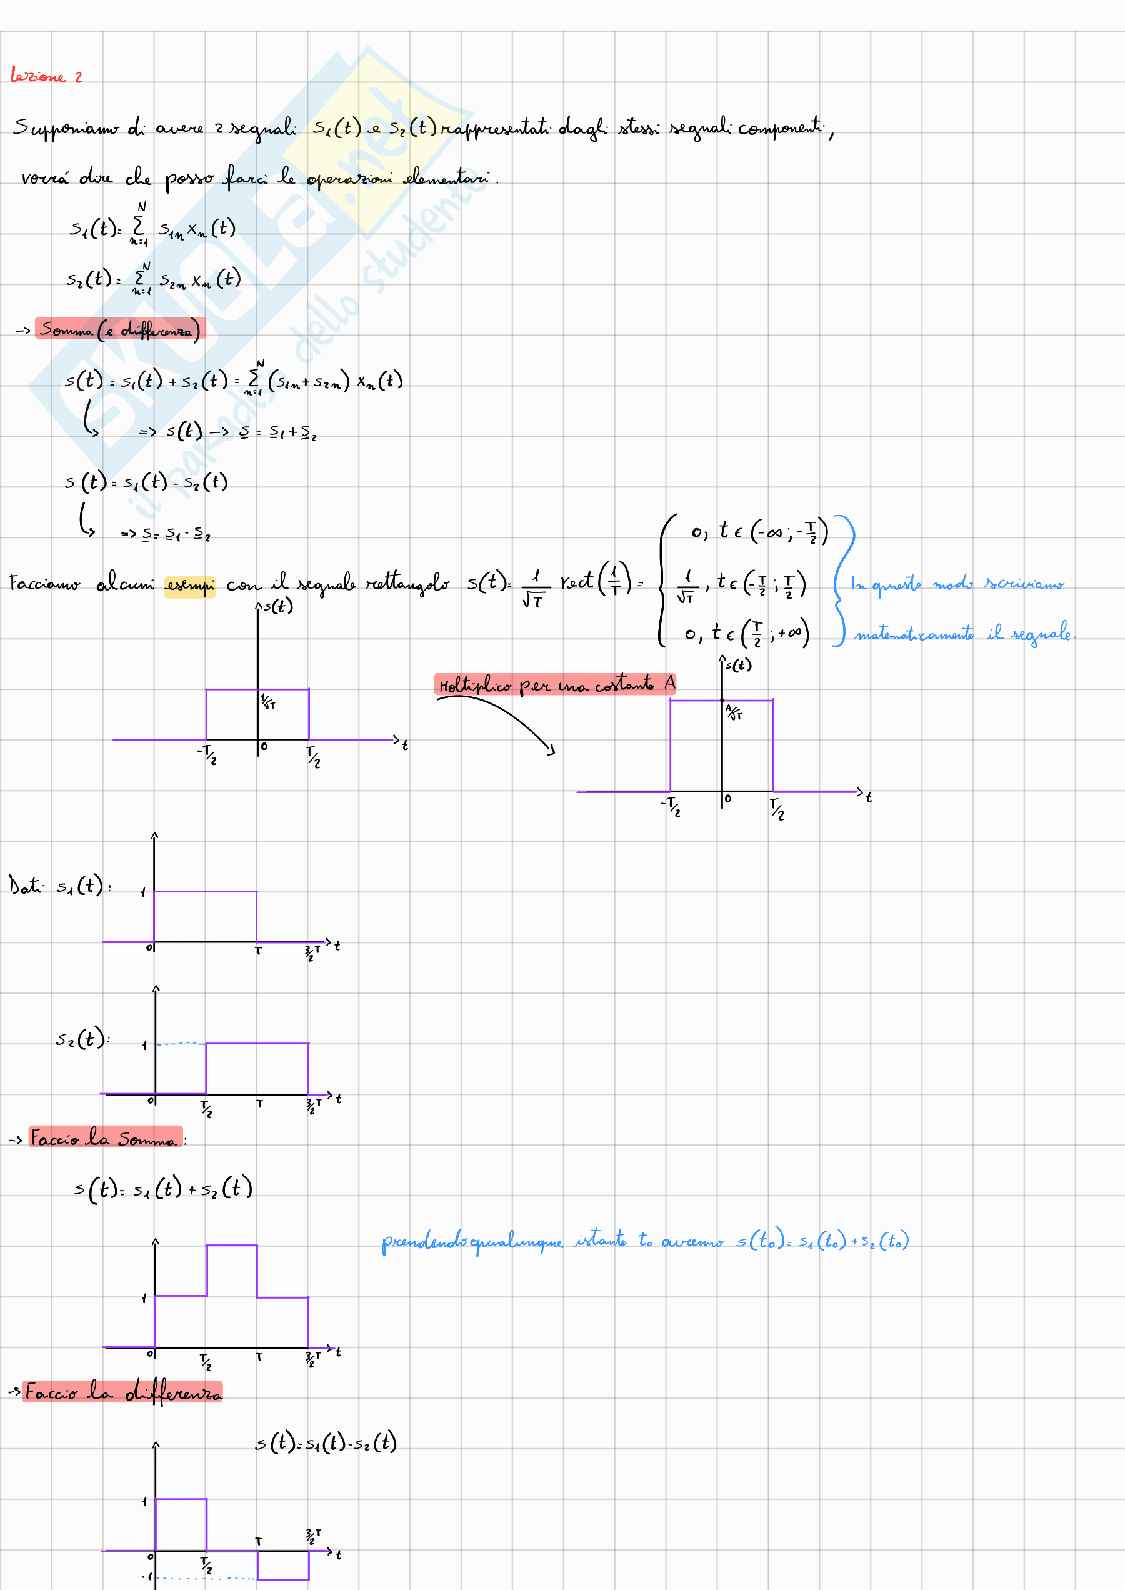 Lezione 2
Supponiamo di avere 2 segnali s₁(t) e s₂(t) rappresentati dagli stessi segnali componenti,
vorrá dire che posso farci le operazioni elementari.
s₁(t) = Σₙ₌₁ᴺ s₁ₙ xₙ(t)
s₂(t) = Σₙ₌₁ᴺ s₂ₙ xₙ(t)
-> Somma (e differenza)
s(t) = s₁(t) + s₂(t) = Σₙ₌₁ᴺ (s₁ₙ + s₂ₙ) xₙ(t)
=> s(t) -> s = s₁ + s₂
s(t) = s₁(t) - s₂(t)
=> s = s₁ - s₂
Facciamo alcuni esempi con il segnale rettangolo s(t) = 1/√T rect(1/T) = { 0, t ∈ (-∞; -T/2)
1/√T, t ∈ (-T/2; T/2)
0, t ∈ (T/2; +∞)
In questo modo scriviamo
matematicamente il segnale.
s(t)
1/√T
-T/2 0 T/2 t
Moltiplico per una costante A
s(t)
A/√T
-T/2 0 T/2 t
Dati s₁(t):
1
0 T 3/2 T t
s₂(t):
1
0 T/2 T 3/2 T t
-> Faccio la Somma:
s(t) = s₁(t) + s₂(t)
prendendo qualunque istante t₀ avremo s(t₀) = s₁(t₀) + s₂(t₀)
1
0 T/2 T 3/2 T t
-> Faccio la differenza
s(t) = s₁(t) - s₂(t)
1
0 T/2 T 3/2 T t
-1
SKUOLA.net
il paradiso dello studente